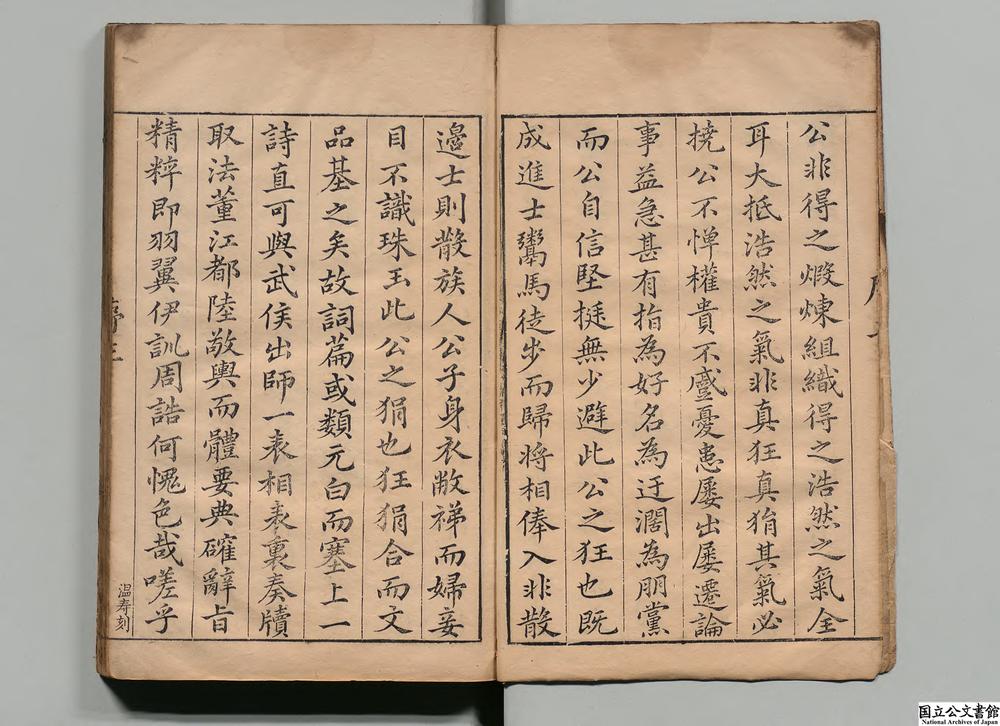 公非得之煅煉組織得之浩然之氣全
耳大抵浩然之氣非真狂真狷其氣必
撓公不憚權貴不慼憂患屢出屢遷論
事益急甚有指為好名為迂濶為朋黨
而公自信堅挺無少避此公之狂也既
成進士鬻馬徒步而歸將相俸入非散
邊士則散族人公子身衣敝禘而婦妾
目不識珠玉此公之狷也狂狷合而文
品基之矣故詞篇或類元白而塞上一
詩直可與武侯出師一表相表裏奏牘
取法董江都陸敬輿而體要典確辭旨
精粹即羽翼伊訓周誥何愧色哉嗟乎
序三
温寿刻
国立公文書館
National Archives of Japan